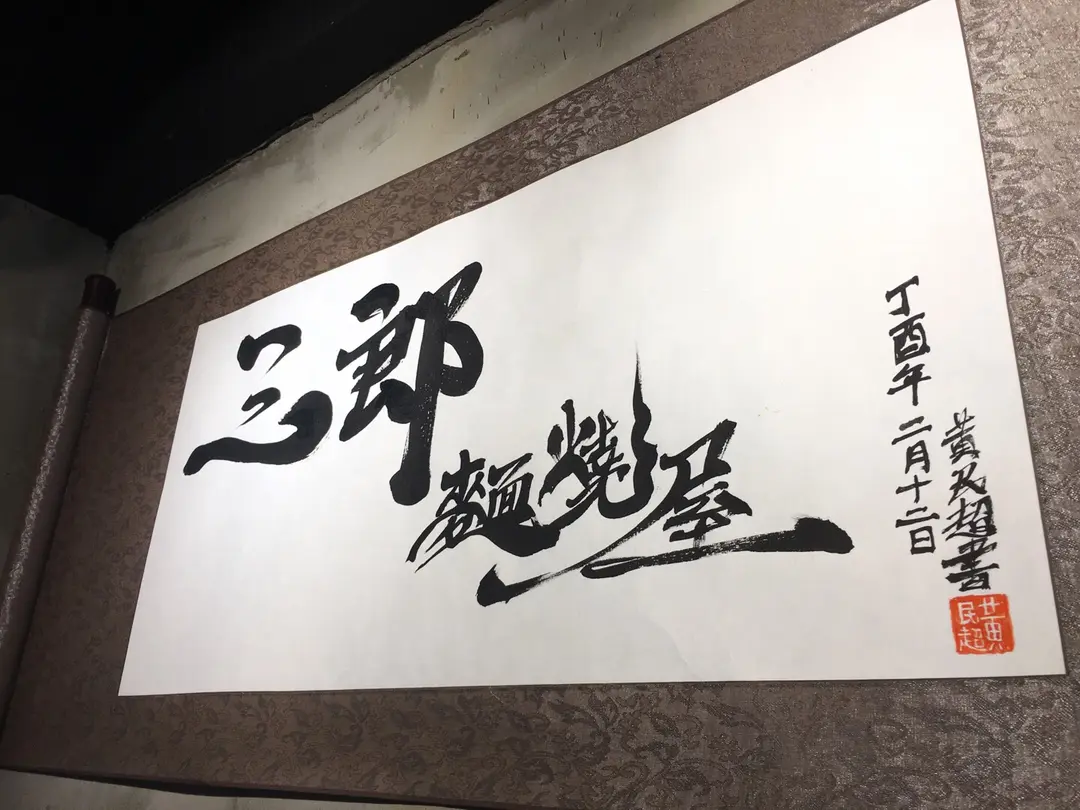 三郎
麵燒屋
丁酉年二月十二日
黄民超書
黄民超